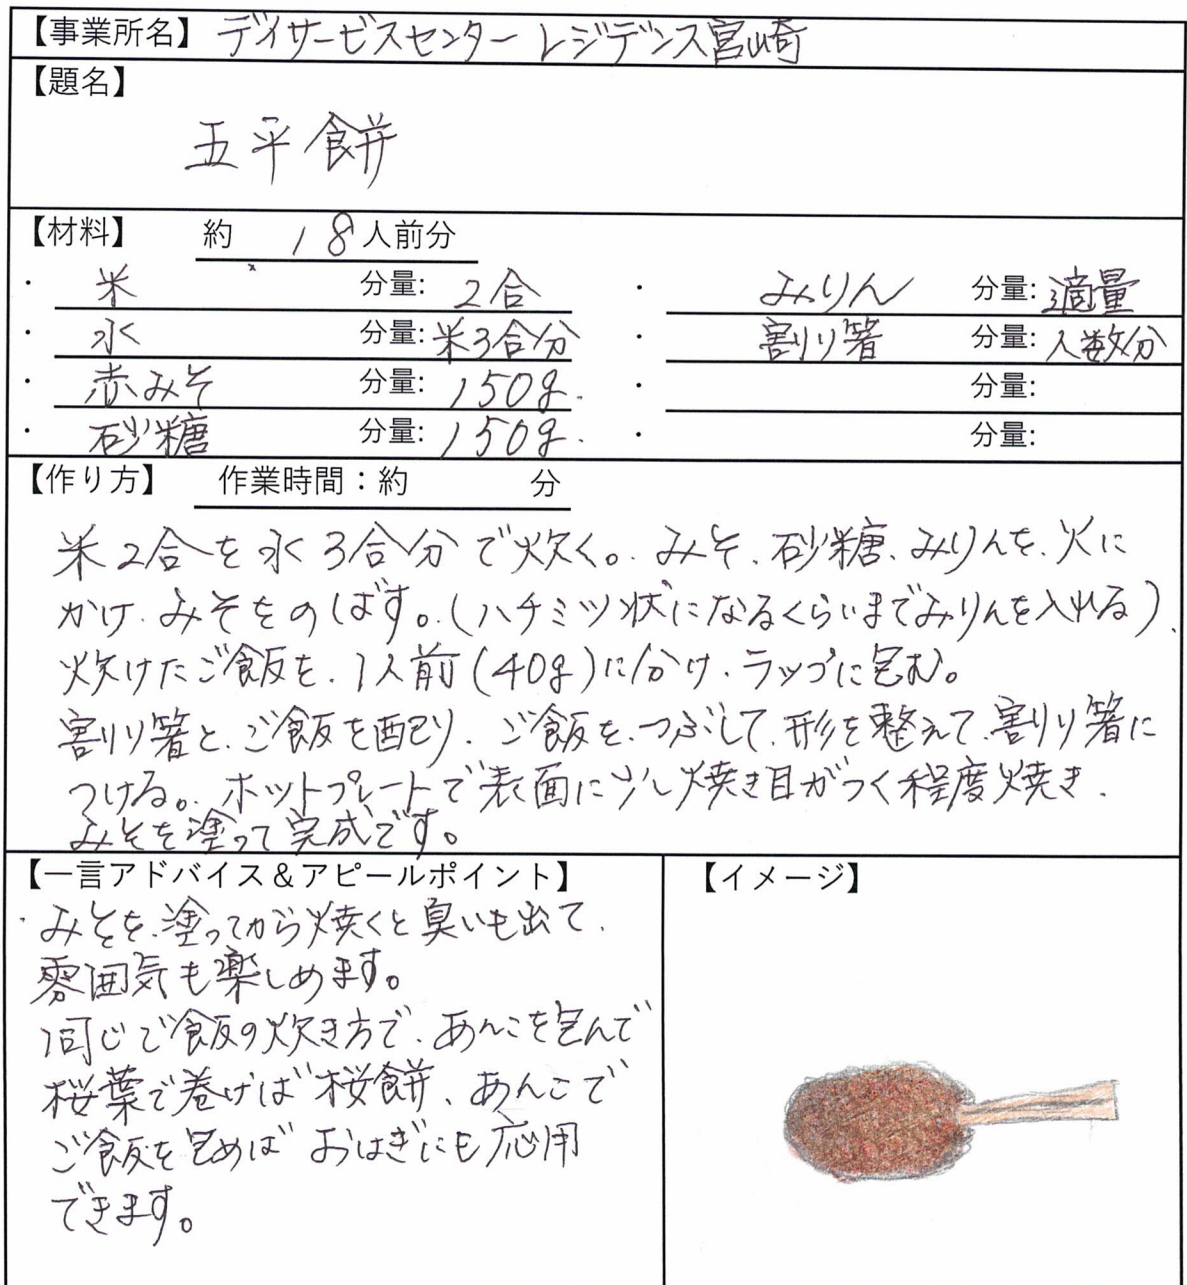 【事業所名】 デイサービスセンター レジデンス宮崎
【題名】
五平餅
【材料】 約 18 人前分
・ 米 分量: 2合 ・ みりん 分量: 適量
・ 水 分量: 米3合分 ・ 割り箸 分量: 人数分
・ 赤みそ 分量: 150g. ・ 分量:
・ 砂糖 分量: 150g. ・ 分量:
【作り方】 作業時間：約 分
米2合を水3合分で炊く。みそ、砂糖、みりんを、火に
かけ、みそをのばす。(ハチミツ状になるくらいまでみりんを入れる)、
炊けたご飯を、1人前(40g)に分け、ラップに包む。
割り箸と、ご飯を配り、ご飯を、つぶして、形を整えて、割り箸に
つける。ホットプレートで表面に少し焼き目がつく程度焼き、
みそを塗って完成です。
【一言アドバイス＆アピールポイント】
・みそを、塗ってから焼くと臭いも出て、
雰囲気も楽しめます。
同じご飯の炊き方で、あんこを包んで
桜葉で巻けば桜餅、あんこで
ご飯を包めばおはぎにも応用
できます。
【イメージ】